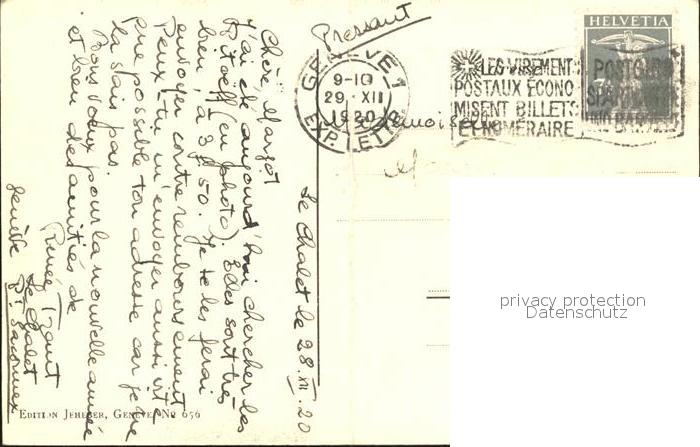 Pressant
HELVETIA
GENÈVE 1
9-10
29·XII
1920
EXP. LETTR.
LES VIREMENTS
POSTAUX ÉCONO
MISENT BILLETS
ET NUMÉRAIRE
POSTGIRO
SPART
UND BAR
Mademoiselle
Le Chalet le 28.XII.20
Chère Margot
J'ai été aujourd'hui chercher les
Pitoëff (en photo). Elles sont très
bien, à 3f 50. Je te les ferai
envoyer contre remboursement
Peux-tu m'envoyer aussi vite
que possible ton adresse car je ne
la sais pas.
Bons vœux pour la nouvelle année
et bien des amitiés de
Renée
Le Chalet
Pt Saconnex
Genève
EDITION JEHEBER, GENÈVE, No 656
privacy protection
Datenschutz